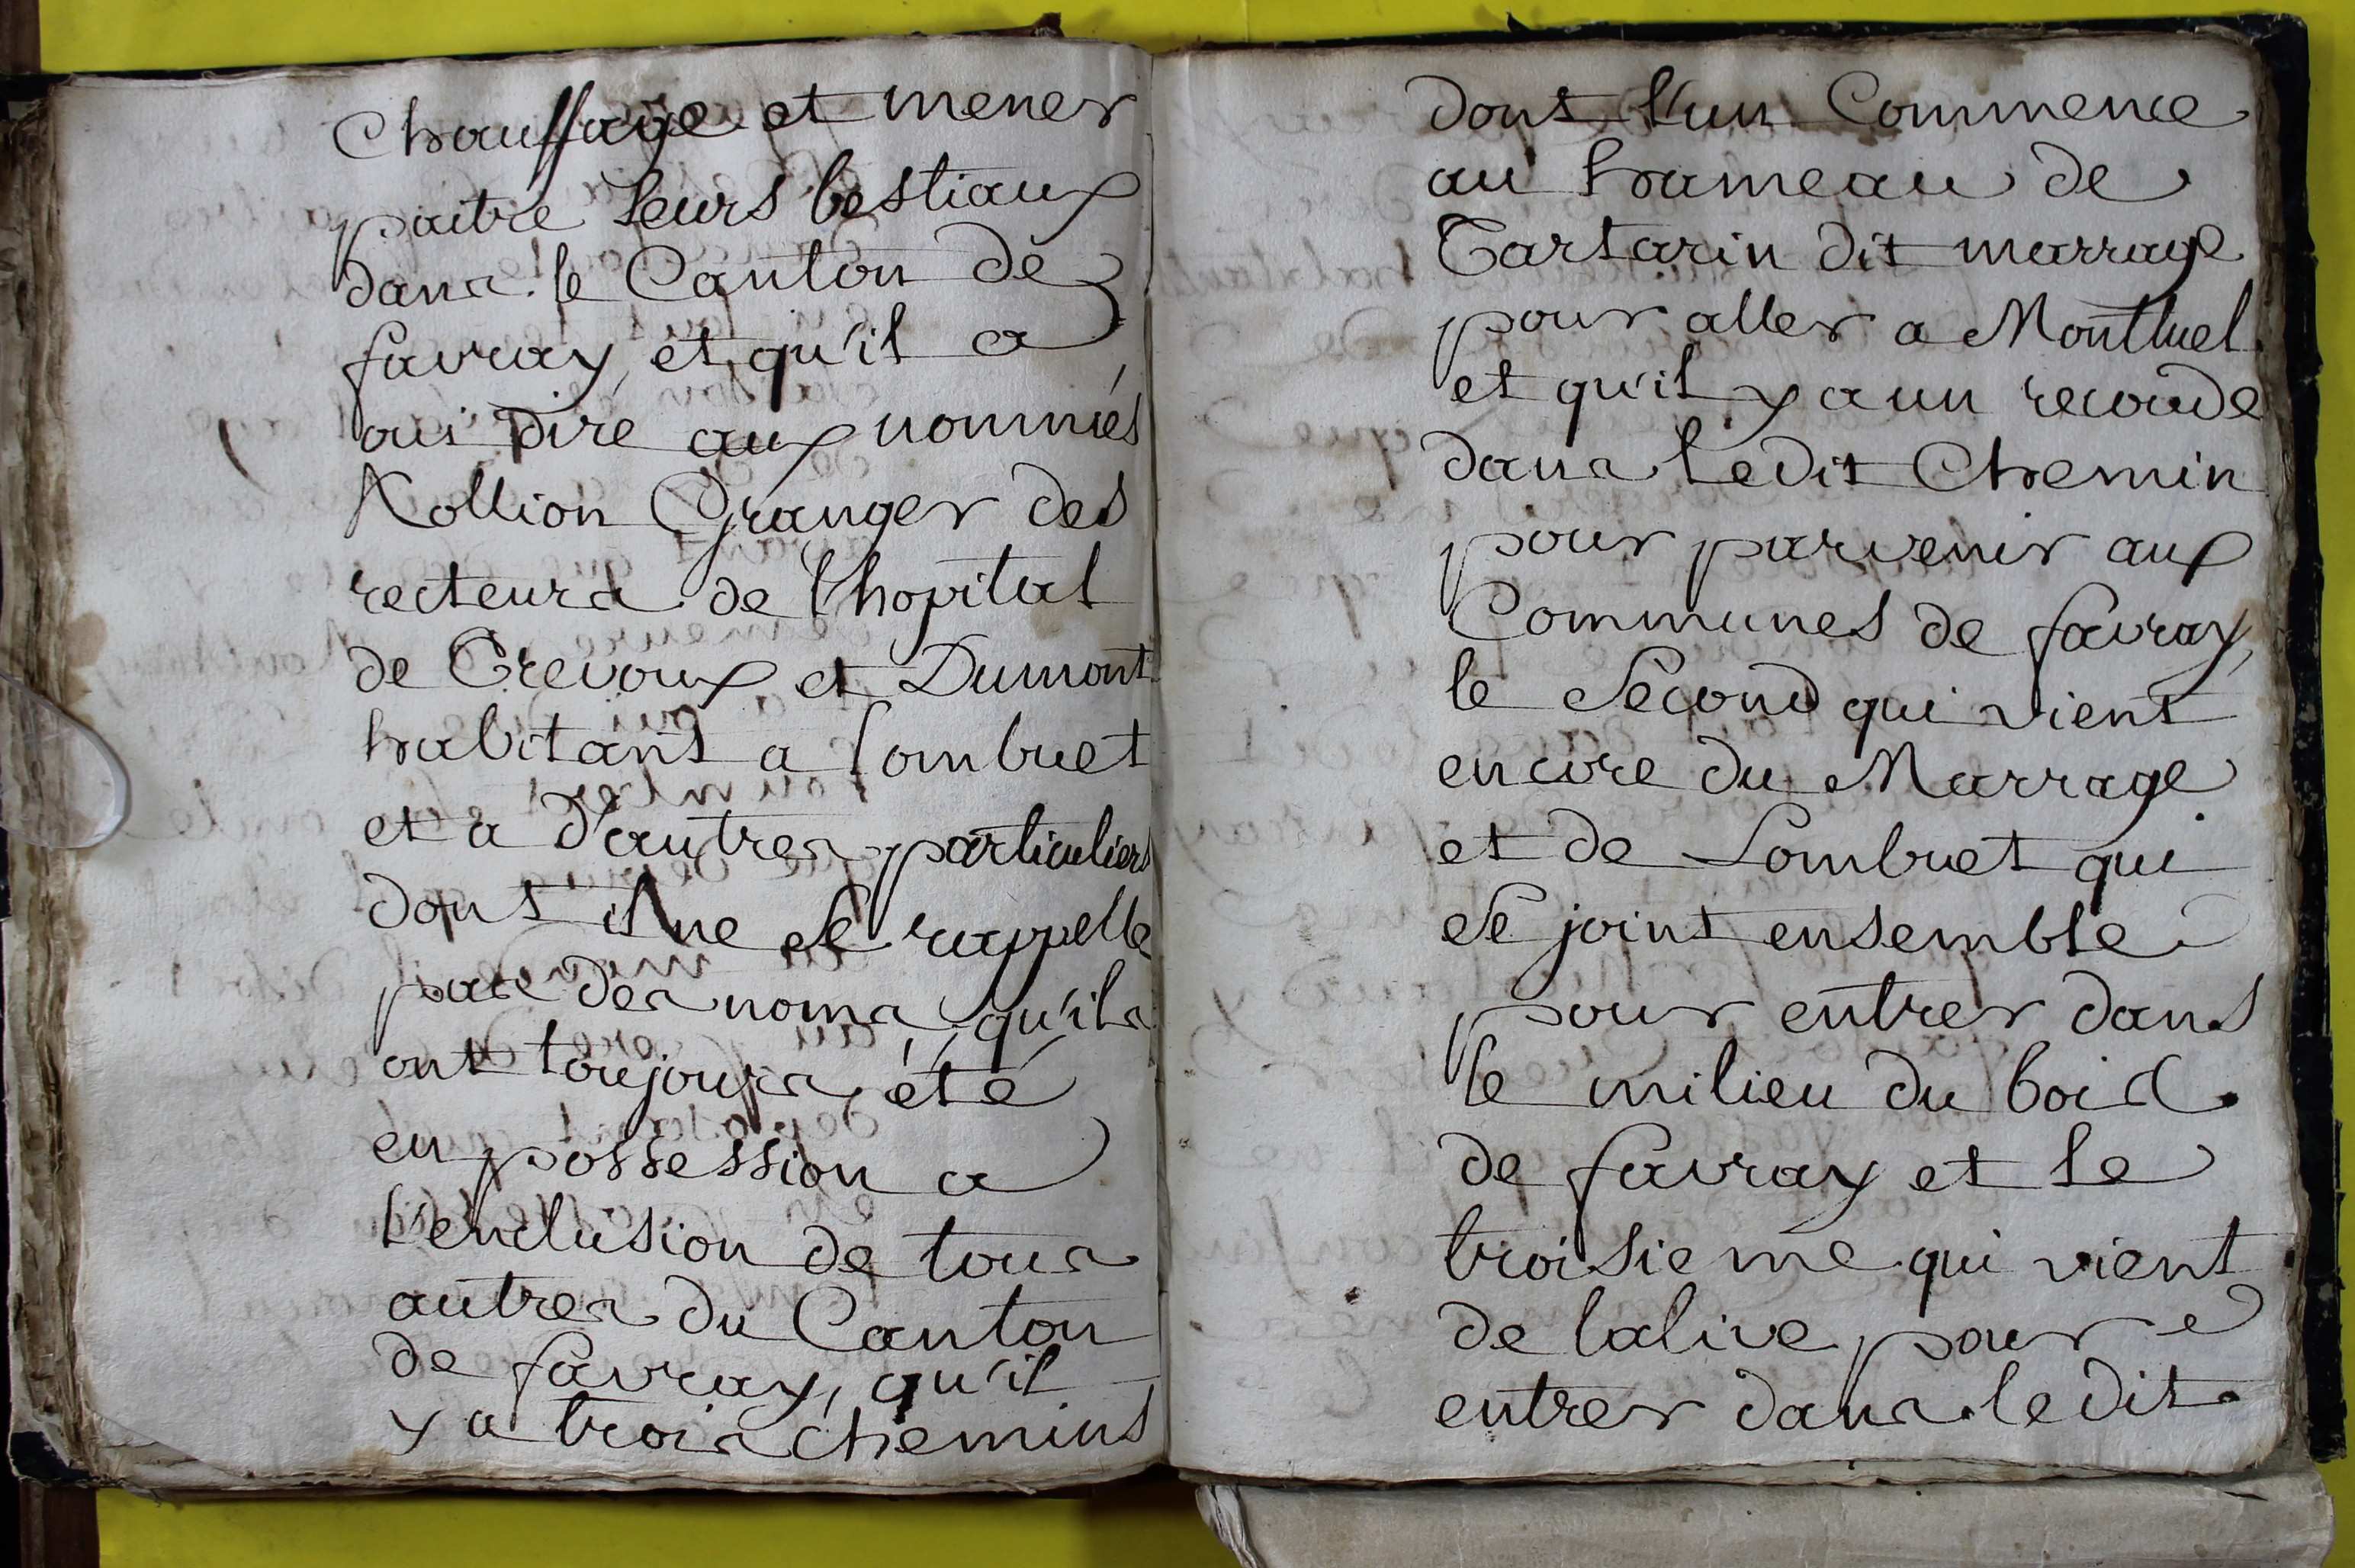 Chauffage et mener
paitre leurs bestiaux
dans le Canton de
favray, et qu'il a
oui dire aux nommés
Nollion Granger des
recteurs de l'hopital
de Trevoux et Dumont
habitant a Lombret
et a d'autres particuliers
dont il ne se rappelle
pas des noms, qu'ils
ont toujours, été
en possession a
l'enclusion de tous
autres du Canton
de favray, qu'il
y a trois chemins
dont l'un Commence
au hameau de
Tartarin dit marrage
pour aller a Montluel
et qu'il y a un recoude
dans ledit Chemin
pour parvenir aux
Communes de favray,
le Second qui vient
encore du Marrage
et de Lombret qui
se joint ensemble
pour entrer dans
le milieu du bois
de favray et le
troisieme qui vient
de lalive pour
entrer dans ledit